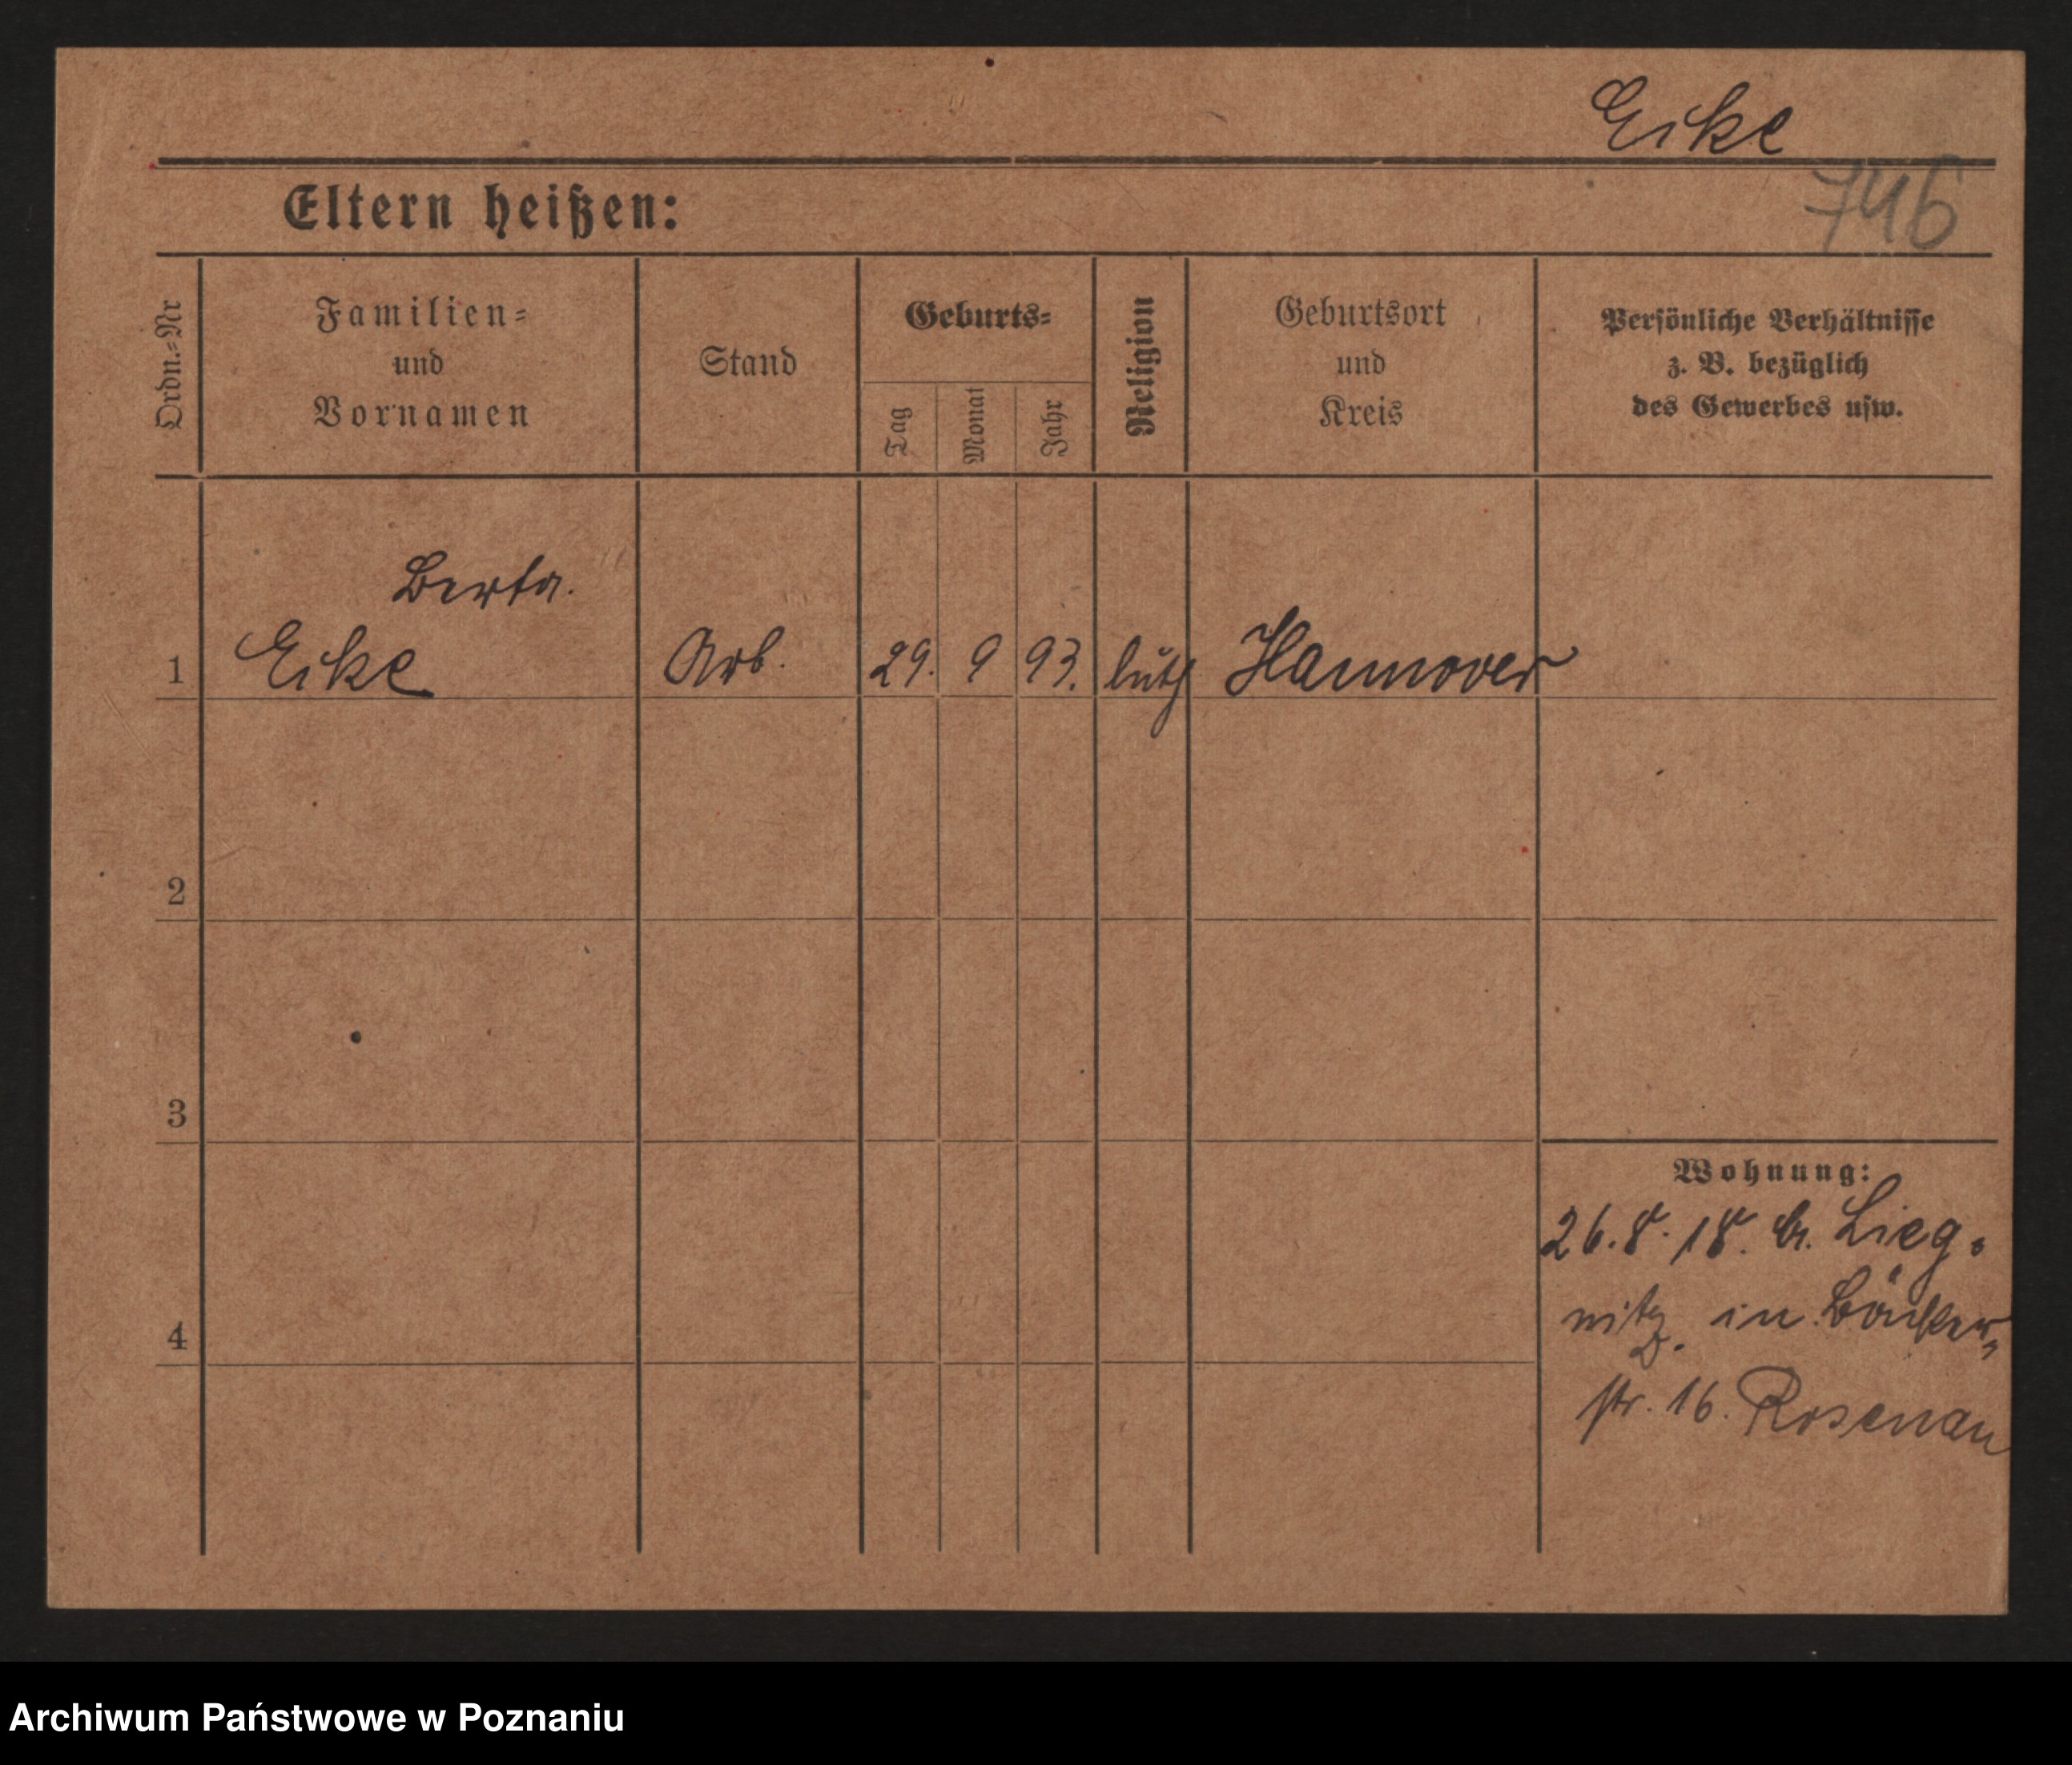 Eike
746
Eltern heißen:
Ordn.=Nr
Familien=
und
Vornamen
Stand
Geburts=
Tag
Monat
Jahr
Religion
Geburtsort
und
Kreis
Persönliche Verhältnisse
z. B. bezüglich
des Gewerbes usw.
Berta.
1 Eike Arb. 29. 9 93. luth Hannover
2
3
4
Wohnung:
26.8.18. Lieg=
nitz. in
str. 16. Rosenau
Archiwum Państwowe w Poznaniu